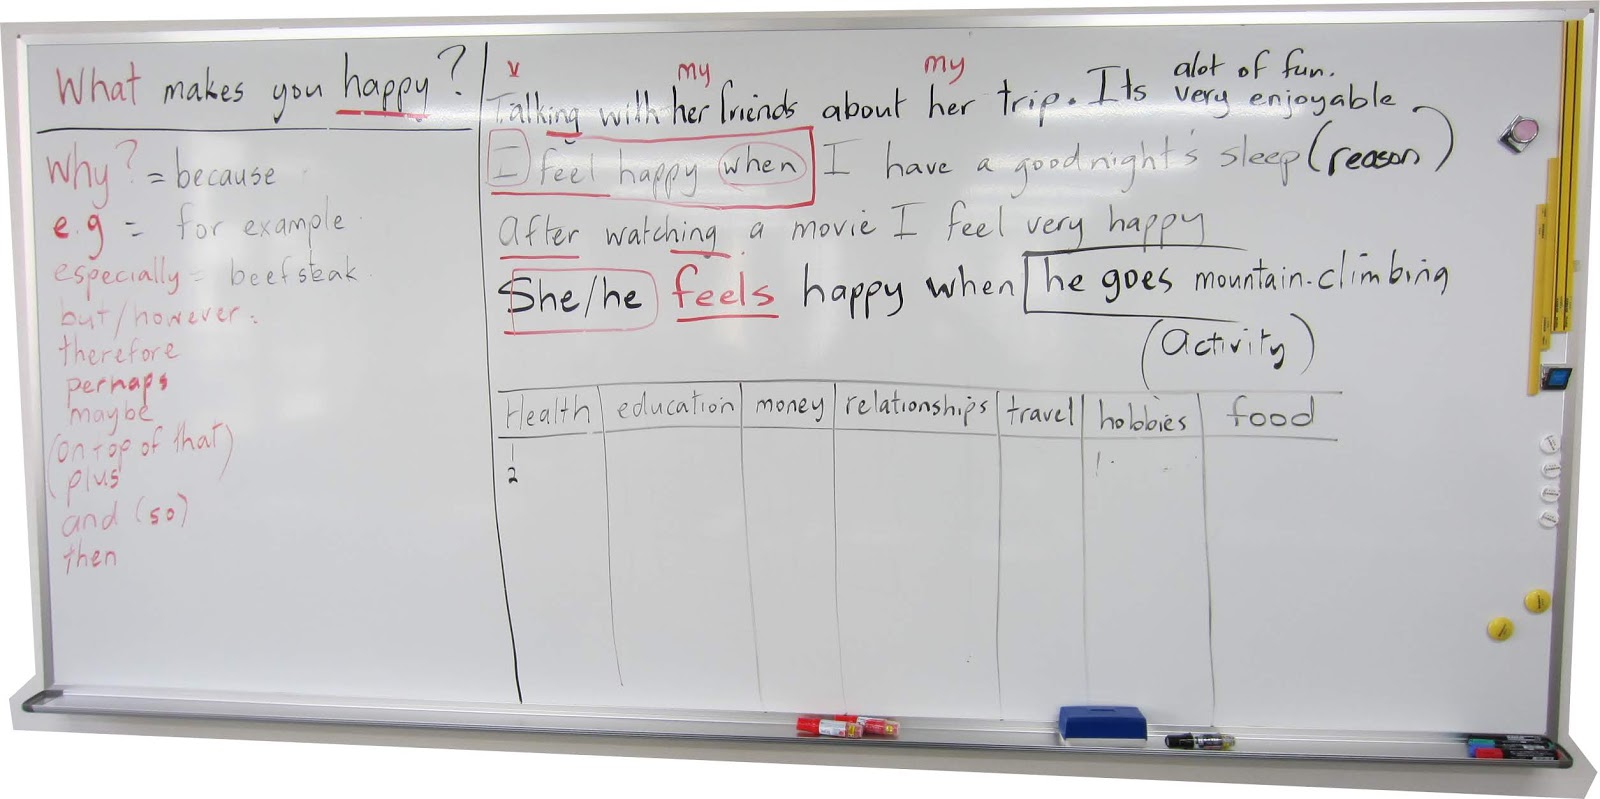 What makes you happy?
Why? = because
e.g = for example
especially = beefsteak.
but/however.
therefore
perhaps
maybe
(on top of that)
(plus
and (so)
then
v my my alot of fun.
Talking with her friends about her trip. Its very enjoyable
I feel happy when I have a good night's sleep (reason)
After watching a movie I feel very happy
She/he feels happy when he goes mountain-climbing
(Activity)
Health education money relationships travel hobbies food
1 1
2